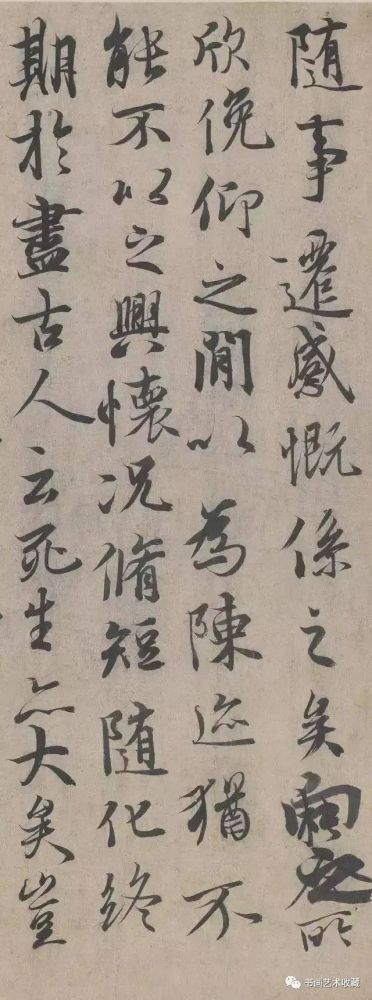 随事遷感慨係之矣向之所
欣俛仰之間以為陳迹猶不
能不以之興懷況脩短随化終
期於盡古人云死生亦大矣豈
书画艺术收藏